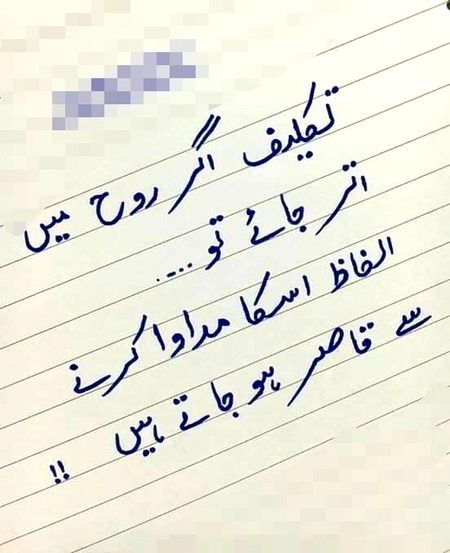 تکلیف اگر روح میں
اتر جائے تو....
الفاظ اسکا مداوا کرنے
سے قاصر ہو جاتے ہیں !!